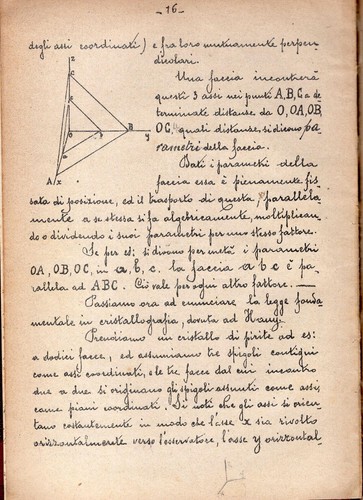 - 16 -
degli assi coordinati) e fra loro mutuamente perpen
dicolari.
Una faccia incontrerà
questi 3 assi nei punti A, B, C a de
terminate distanze da O, OA, OB,
OC, quali distanze, si dicono pa
rametri della faccia.
Dati i parametri della
faccia essa è pienamente fis
sata di posizione, ed il trasporto di questa, parallela
mente a se stessa si fa algebricamente, moltiplican
do o dividendo i suoi parametri per uno stesso fattore.
Se per es: si dicono per metà i parametri
OA, OB, OC, in a, b, c. la faccia a b c è pa
rallela ad ABC. Ciò vale per ogni altro fattore. —
Passiamo ora ad enunciare la legge fonda
mentale in cristallografia, dovuta ad Hauy.
Prendiamo un cristallo di pirite ad es:
a dodici facce, ed assumiamo tre spigoli contigui
come assi coordinati, e le tre facce dal cui incontro
due a due si originano gli spigoli assunti come assi,
come piani coordinati. Si noti che gli assi si orien
tano costantemente in modo che l'asse x sia rivolto
orizzontalmente verso l'osservatore, l'asse y orizzontal
z
C
c
O
a
b
B
y
A
x